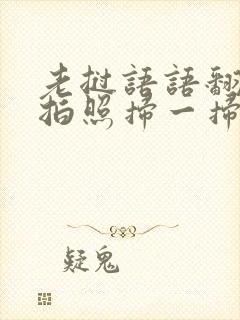 老挝語語翻
拍照掃一掃
疑鬼